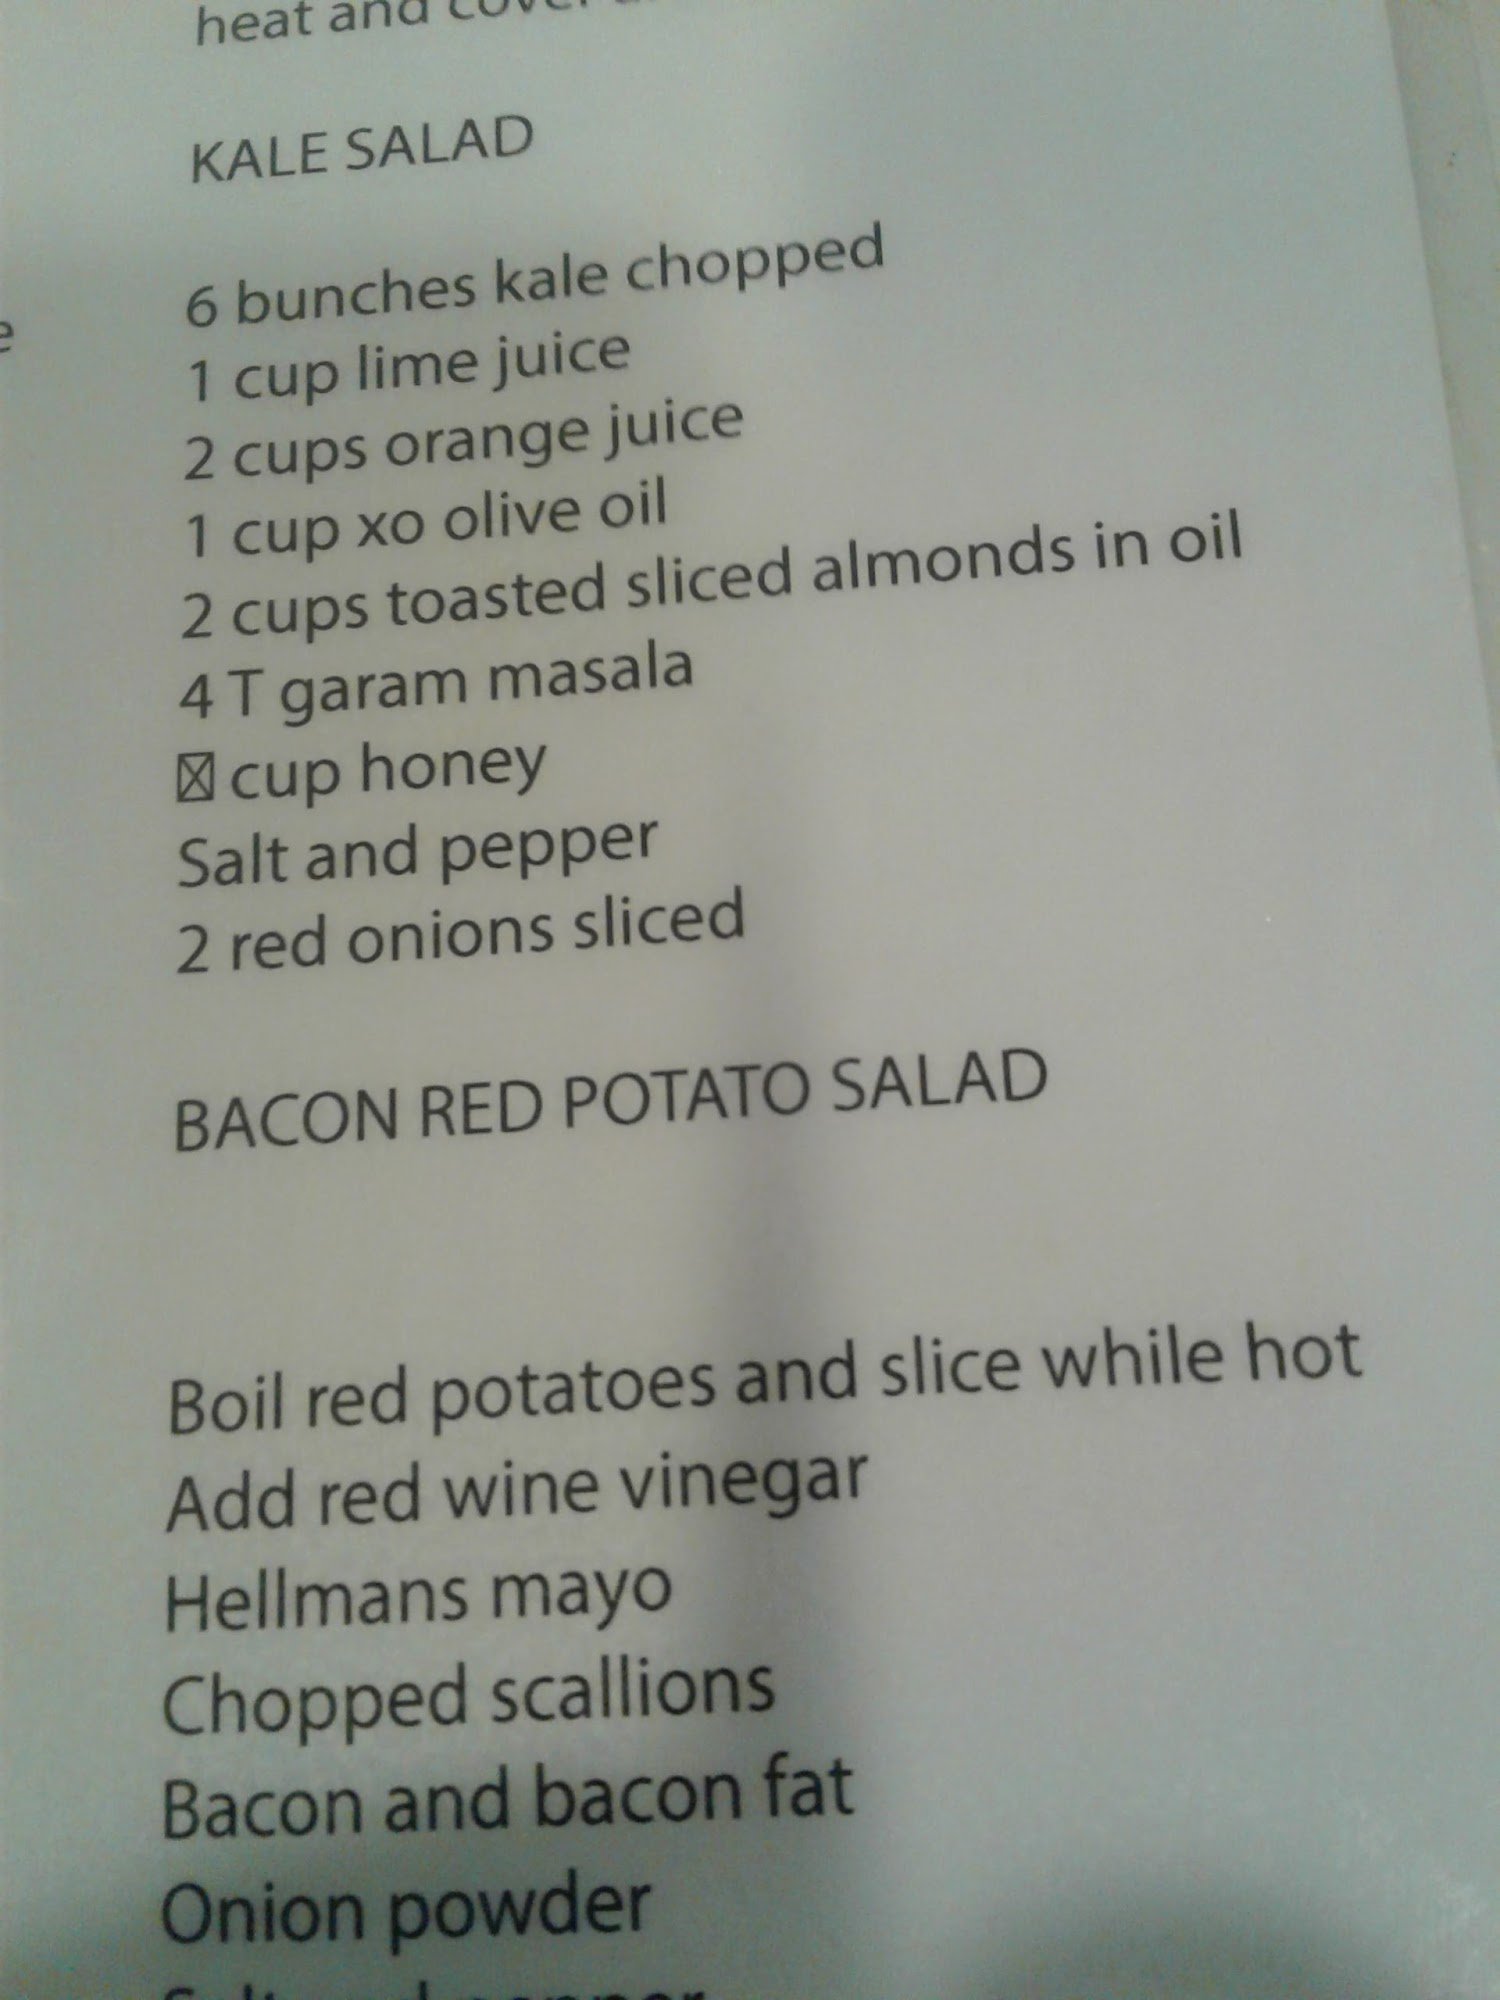 heat and cover
KALE SALAD
6 bunches kale chopped
1 cup lime juice
2 cups orange juice
1 cup xo olive oil
2 cups toasted sliced almonds in oil
4 T garam masala
☒ cup honey
Salt and pepper
2 red onions sliced
BACON RED POTATO SALAD
Boil red potatoes and slice while hot
Add red wine vinegar
Hellmans mayo
Chopped scallions
Bacon and bacon fat
Onion powder
Salt and pepper